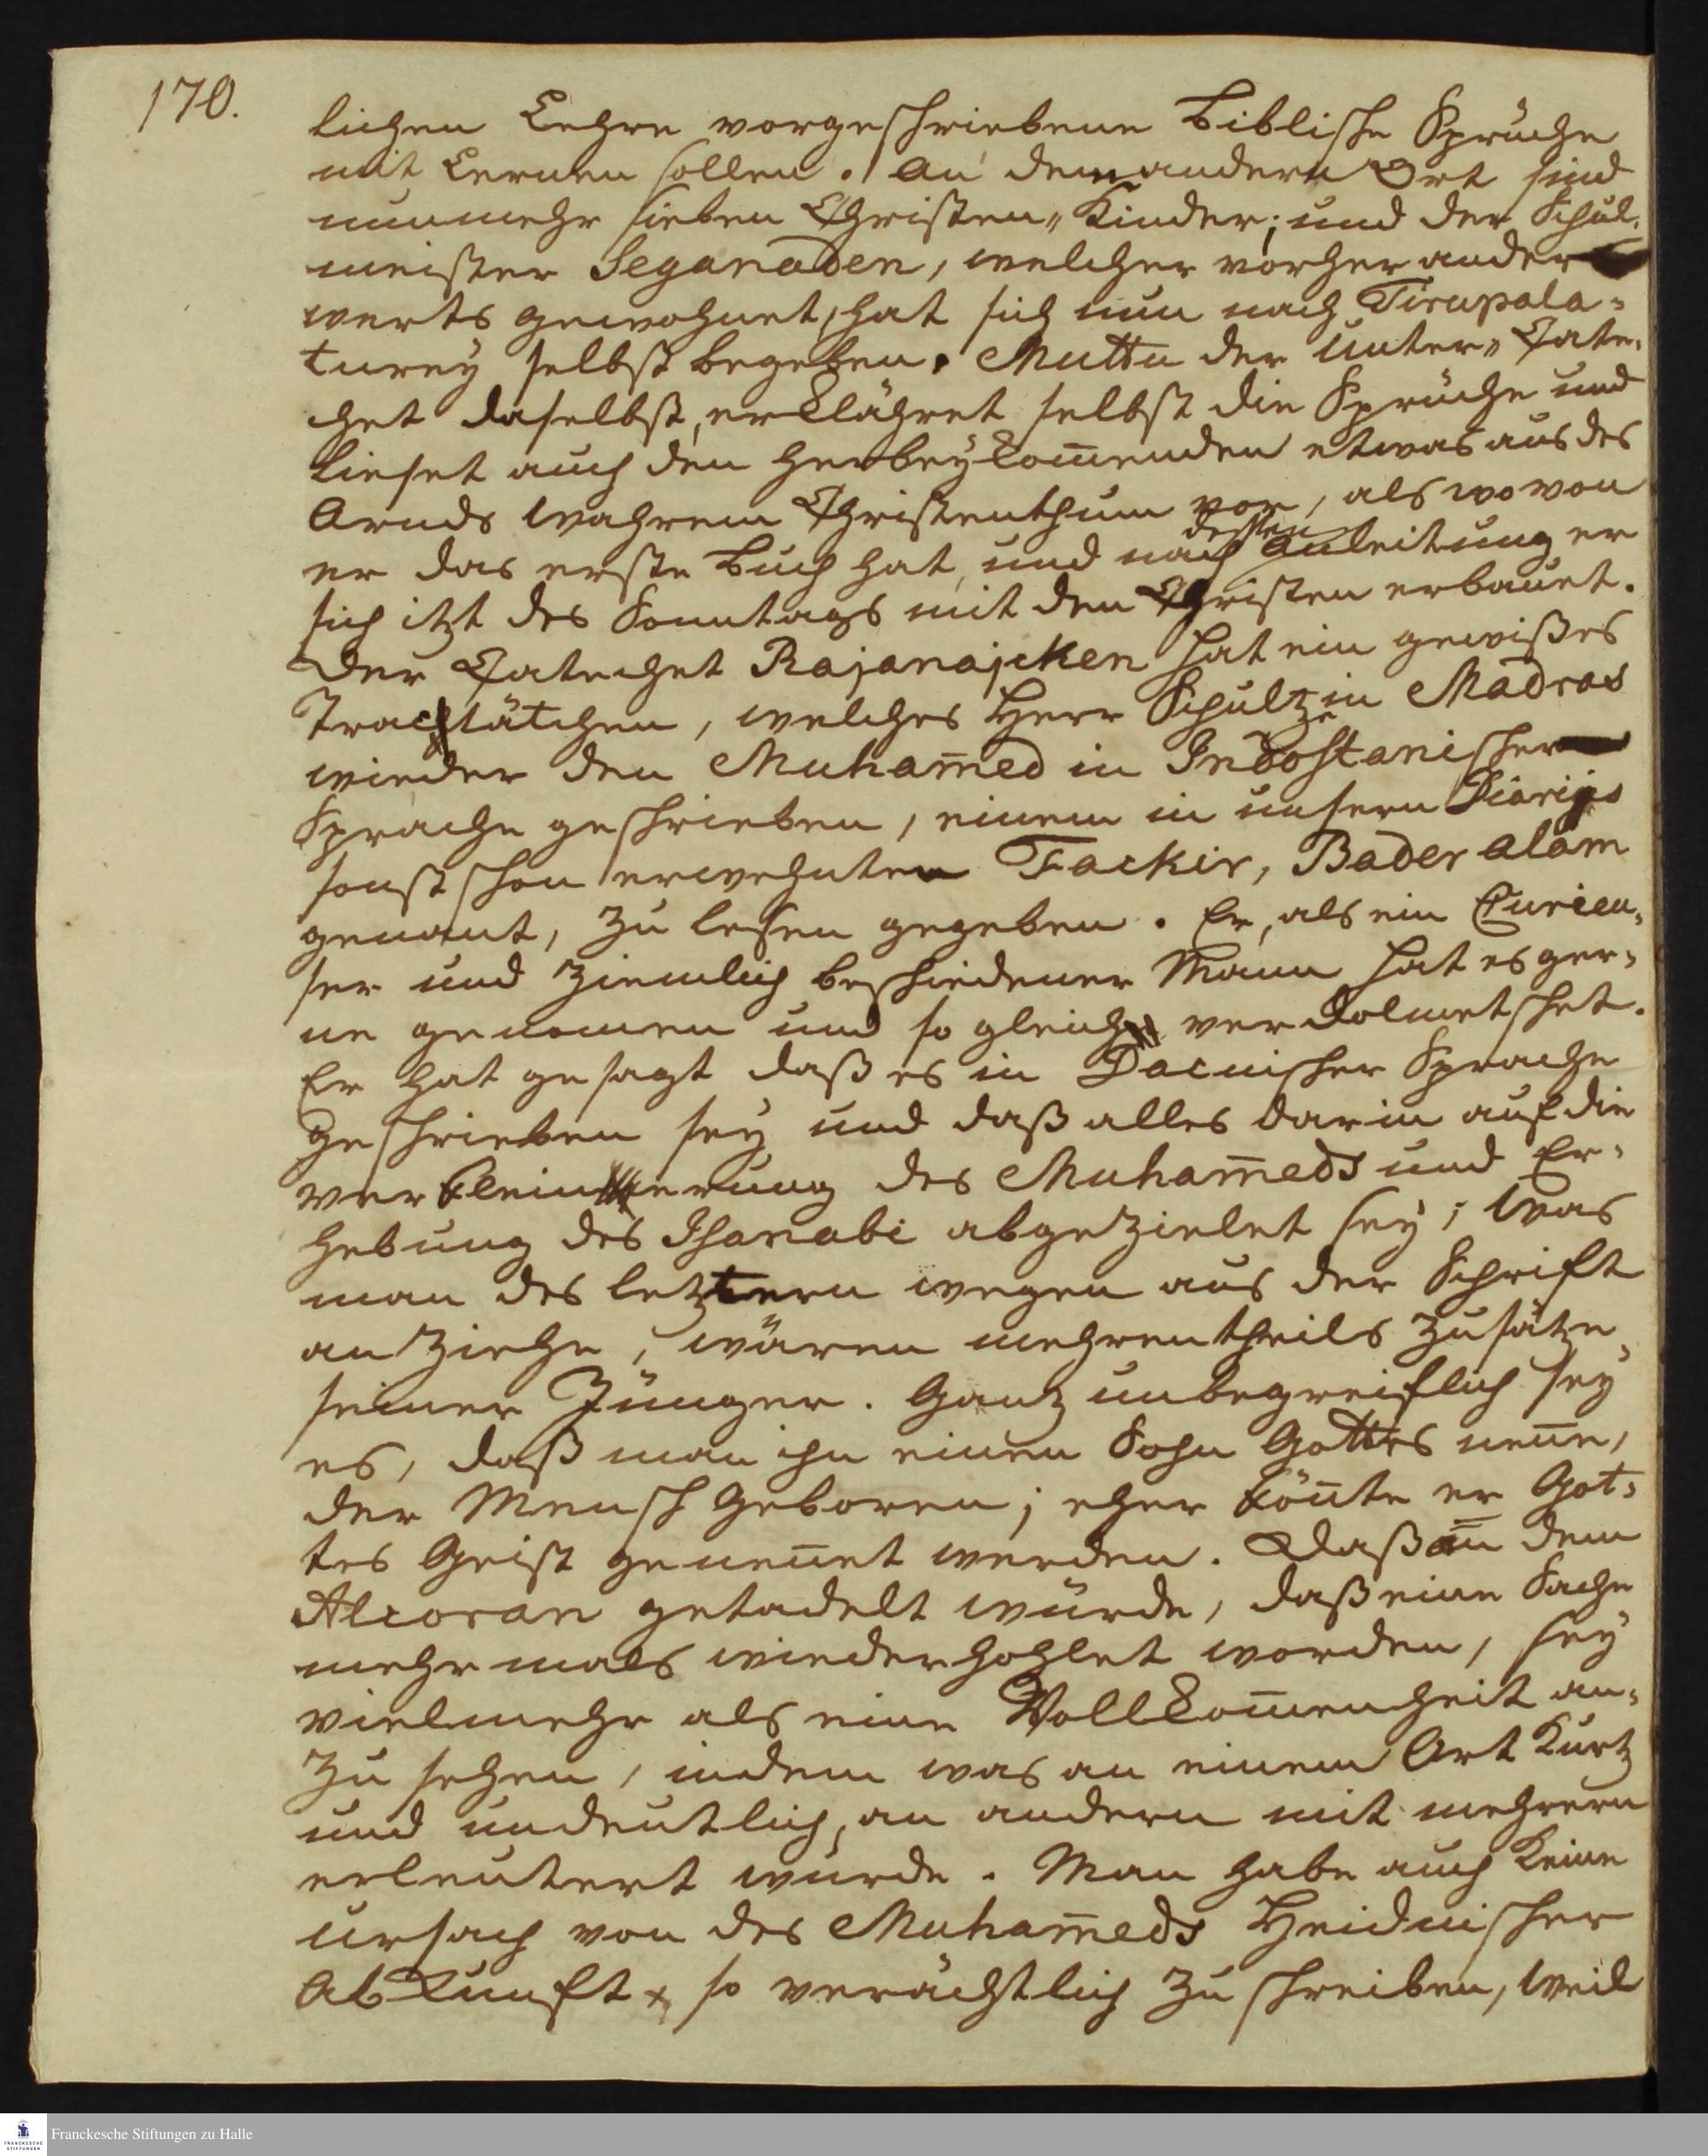 170.
lichen Lehre vorgeschriebene Biblische Sprüche
mit Lernen sollen. An dem andern Ort sind
nunmehr sieben Christen-Kinder; und der Schul-
meister Seganaden, welcher vorher ander
werts gewohnet, hat sich nun nach Tirupala-
turey selbst begeben. Muttu der Unter-Cate-
chet daselbst, erklähret selbst die Sprüche und
Lieset auch den herbeykom̄enden etwas aus des
Arnds Wahrem Christenthum vor, als wovon
er das erste Buch hat, und nach dessen Anleitung er
sich itzt des Sonntags mit den Christen erbauet.
Der Catechet Rajanajcken hat ein gewißes
Tractätchen, welches Herr Schultze in Madras
wieder den Muham̄ed in Indostanischer
Sprache geschrieben, einem in unsern Diarijs
sonst schon erwehnten Fackir, Bader alam
genant, zu lesen gegeben. Er, als ein Curieu-
ser und ziemlich beschiedener Mann hat es ger-
ne genomen und so gleich verdolmetschet.
Er hat gesagt daß es in Dacnischer Sprache
geschrieben sey und daß alles darin auf die
verkleinerung des Muham̄eds und Er-
hebung des Isanabi abgezielet sey; Was
man des letztern wegen aus der Schrift
anziehe, wären mehrentheils zusätze
seiner Jünger. Gantz unbegreiflich sey
es, daß man ihn einen Sohn Gottes nen̄e,
der Mensch geboren; eher kön̄te er Got-
tes Geist genen̄et werden. Daß an dem
Alcoran getadelt würde, daß eine Sache
mehrmals wiederhohlet worden, sey
vielmehr als eine Vollkom̄enheit an-
zu sehen, indem was an einem Ort kurtz
und undeutlich, an andern mit mehrern
erleutert würde. Man habe auch keine
ursach von des Muham̄eds Heidnischer
Abkunft so verächtlich zu schreiben, weil
Franckesche Stiftungen zu Halle
FRANCKESCHE
STIFTUNGEN